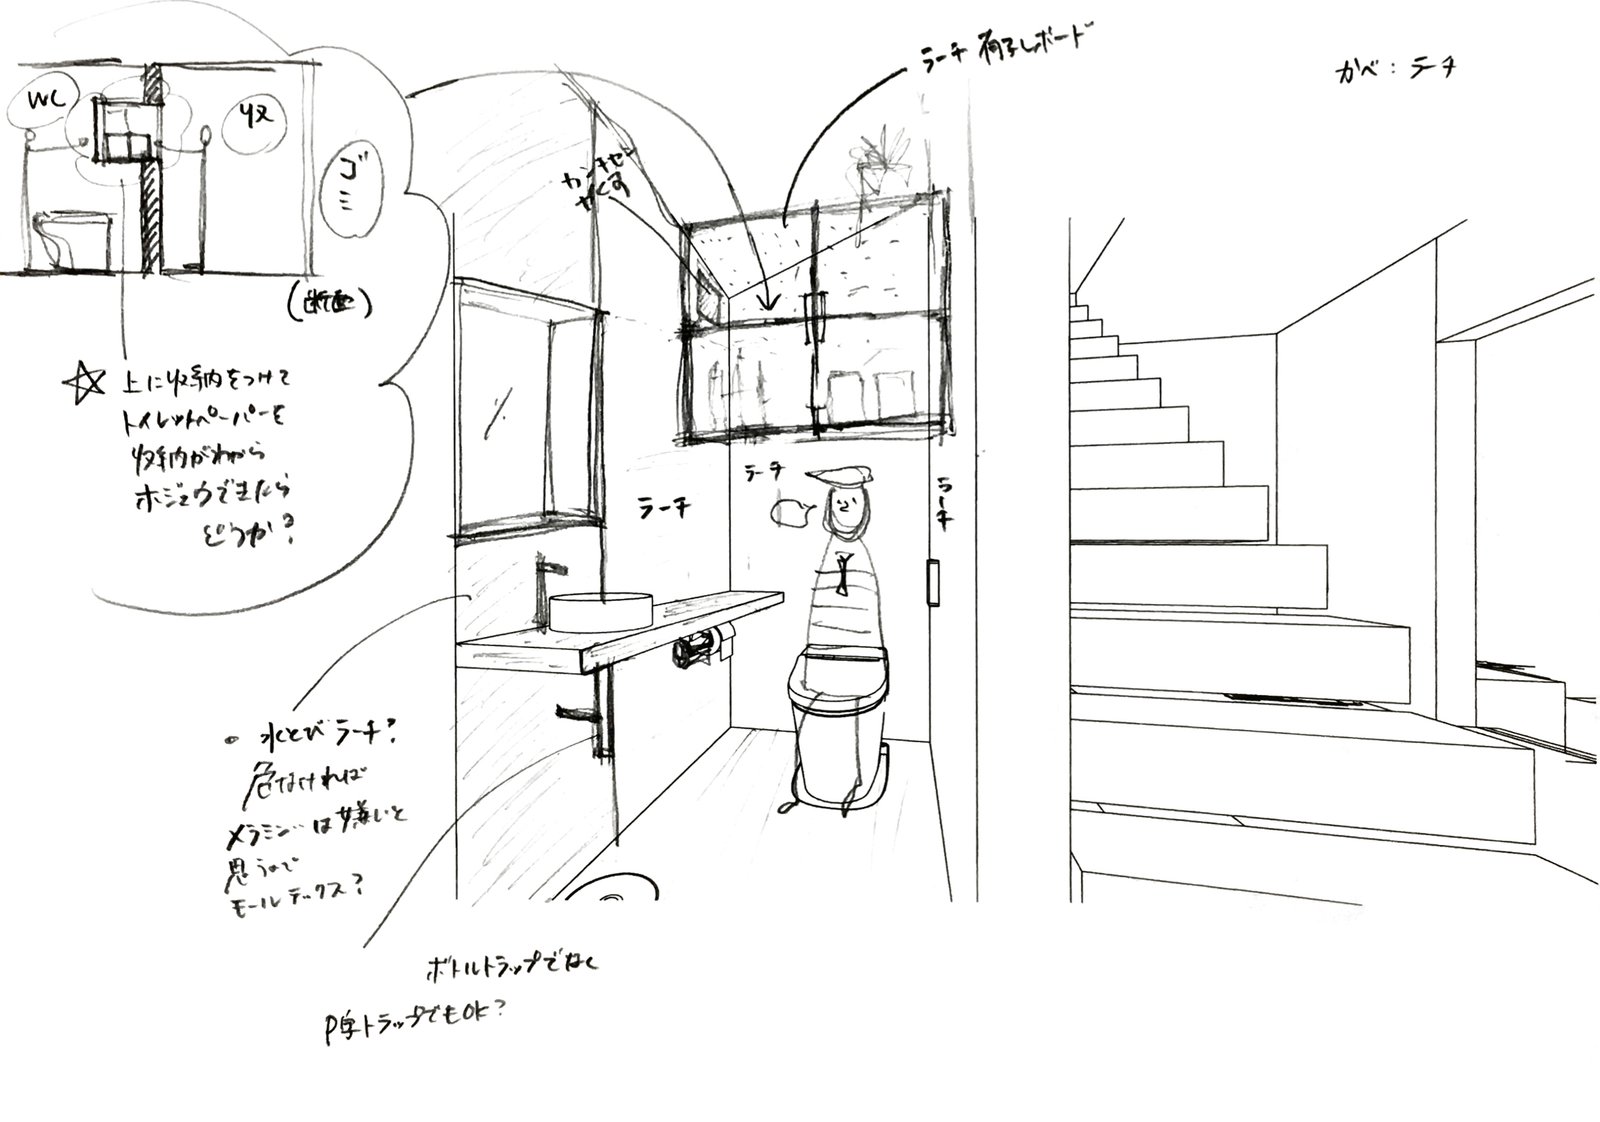 WC
収
ゴミ
(断面)
☆ 上に収納をつけて
トイレットペーパーを
収納がわから
ホジュウできたら
どうか?
ラーチ 有孔ボード
かべ:ラーチ
カンキセン
かくす
ラーチ
ラーチ
ラーチ
・水とびラーチ?
危なければ
メラミンは嫌いと
思うので
モールテックス?
ボトルトラップでなく
P字トラップでもOK?